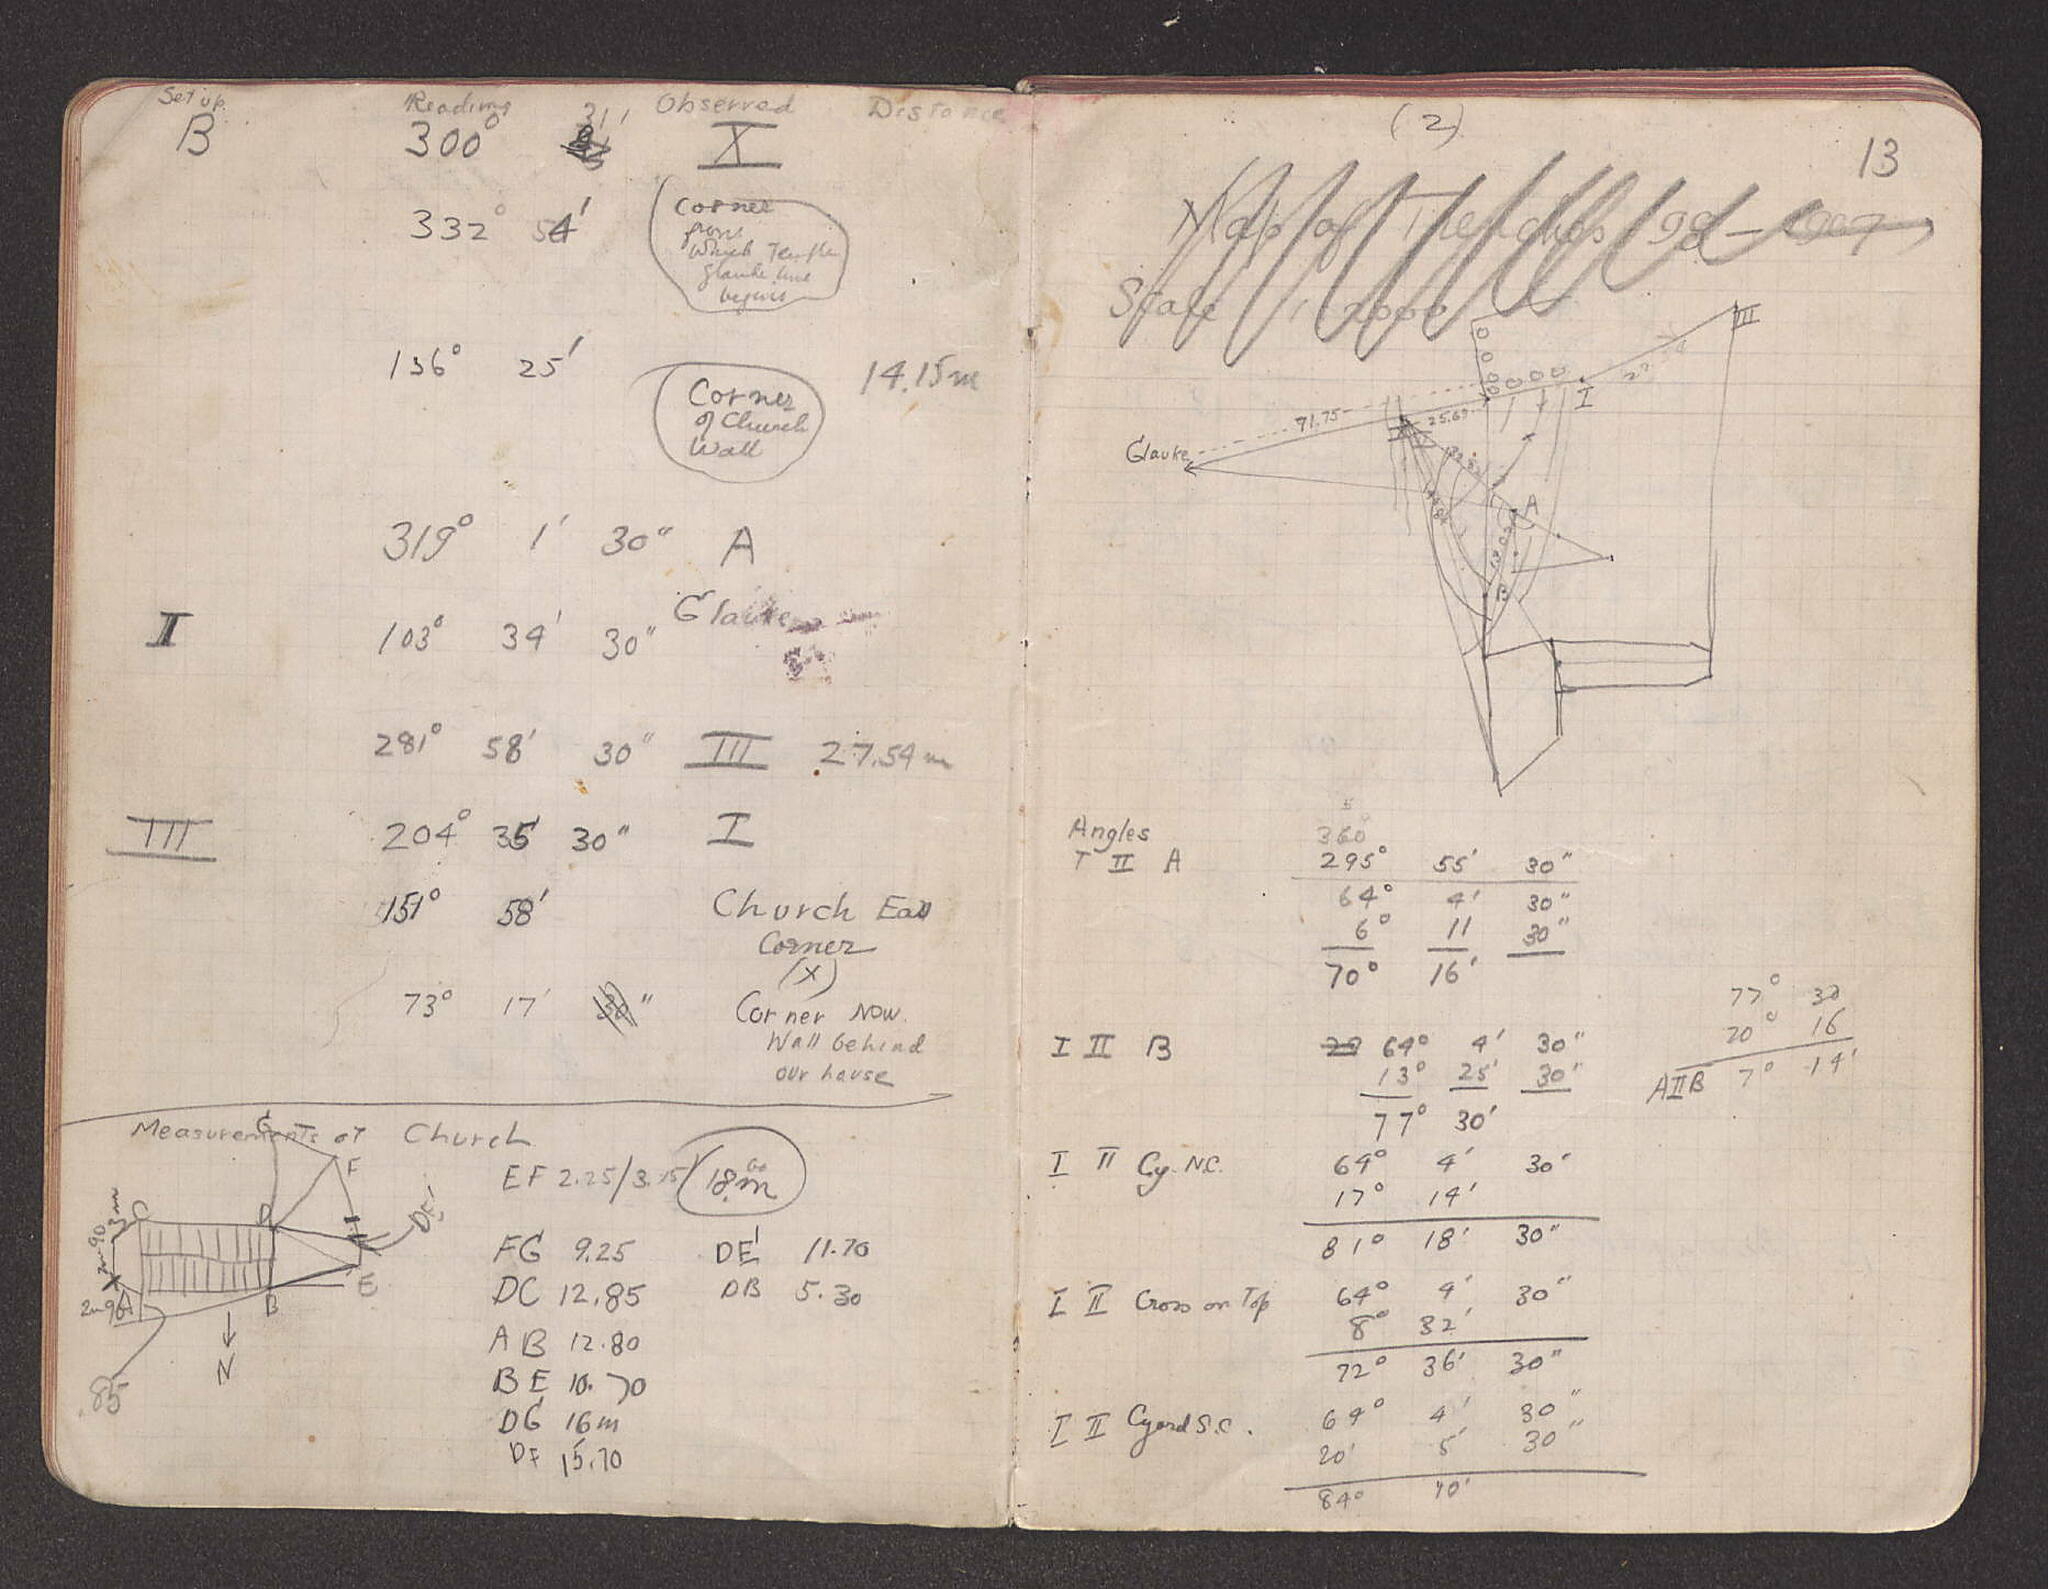 Set up Reading Observed Distance
B 300° 31' X
332° 54' Corner
from
which Temple
Glauke line
begins
136° 25' Corner
of Church
Wall 14.15m
319° 1' 30" A
II 103° 34' 30" Glauke
281° 58' 30" III 27.54m
III 204° 35' 30" I
151° 58' Church East
Corner
(X)
73° 17' 30" Corner now.
Wall behind
our house
Measurements of Church
G
F
C
D
DE'
E
A
B
3m
2m90
2m90
N
.85
EF 2.25/3.15/ 18.m
FG 9.25 DE' 11.70
DC 12.85 DB 5.30
AB 12.80
BE 10.70
DG 16m
DF 15.70
(2)
13
Map of Trenches 198 - 1907
Scale 1:2000
III
27.
I
71.75
25.69
Glauke
II
A
B
Angles
360°
I II A 295° 55' 30"
64° 4' 30"
6° 11 30"
70° 16'
77° 30
70° 16
A II B 7° 14'
I II B 64° 4' 30"
13° 25' 30"
77° 30'
I II Cy. N.C. 64° 4' 30'
17° 14'
81° 18' 30"
I II Cross on Top 64° 4' 30"
8° 32'
72° 36' 30"
I II Cyard S.C. 64° 4' 30"
20' 5' 30"
84° 10'